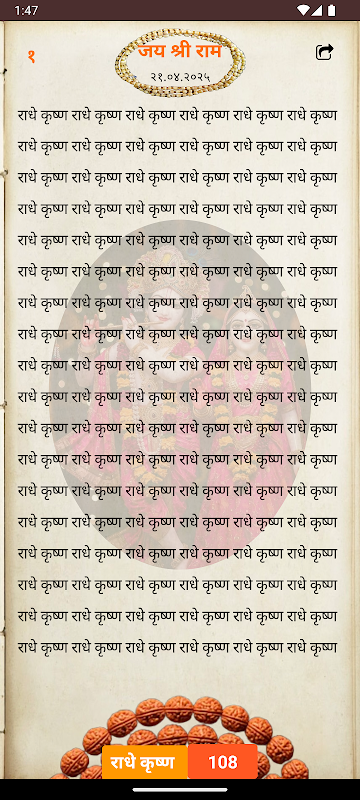 1:47
१
जय श्री राम
२१.०४.२०२५
राधे कृष्ण राधे कृष्ण राधे कृष्ण राधे कृष्ण राधे कृष्ण राधे कृष्ण
राधे कृष्ण राधे कृष्ण राधे कृष्ण राधे कृष्ण राधे कृष्ण राधे कृष्ण
राधे कृष्ण राधे कृष्ण राधे कृष्ण राधे कृष्ण राधे कृष्ण राधे कृष्ण
राधे कृष्ण राधे कृष्ण राधे कृष्ण राधे कृष्ण राधे कृष्ण राधे कृष्ण
राधे कृष्ण राधे कृष्ण राधे कृष्ण राधे कृष्ण राधे कृष्ण राधे कृष्ण
राधे कृष्ण राधे कृष्ण राधे कृष्ण राधे कृष्ण राधे कृष्ण राधे कृष्ण
राधे कृष्ण राधे कृष्ण राधे कृष्ण राधे कृष्ण राधे कृष्ण राधे कृष्ण
राधे कृष्ण राधे कृष्ण राधे कृष्ण राधे कृष्ण राधे कृष्ण राधे कृष्ण
राधे कृष्ण राधे कृष्ण राधे कृष्ण राधे कृष्ण राधे कृष्ण राधे कृष्ण
राधे कृष्ण राधे कृष्ण राधे कृष्ण राधे कृष्ण राधे कृष्ण राधे कृष्ण
राधे कृष्ण राधे कृष्ण राधे कृष्ण राधे कृष्ण राधे कृष्ण राधे कृष्ण
राधे कृष्ण राधे कृष्ण राधे कृष्ण राधे कृष्ण राधे कृष्ण राधे कृष्ण
राधे कृष्ण राधे कृष्ण राधे कृष्ण राधे कृष्ण राधे कृष्ण राधे कृष्ण
राधे कृष्ण राधे कृष्ण राधे कृष्ण राधे कृष्ण राधे कृष्ण राधे कृष्ण
राधे कृष्ण राधे कृष्ण राधे कृष्ण राधे कृष्ण राधे कृष्ण राधे कृष्ण
राधे कृष्ण राधे कृष्ण राधे कृष्ण राधे कृष्ण राधे कृष्ण राधे कृष्ण
राधे कृष्ण राधे कृष्ण राधे कृष्ण राधे कृष्ण राधे कृष्ण राधे कृष्ण
राधे कृष्ण राधे कृष्ण राधे कृष्ण राधे कृष्ण राधे कृष्ण राधे कृष्ण
राधे कृष्ण 108